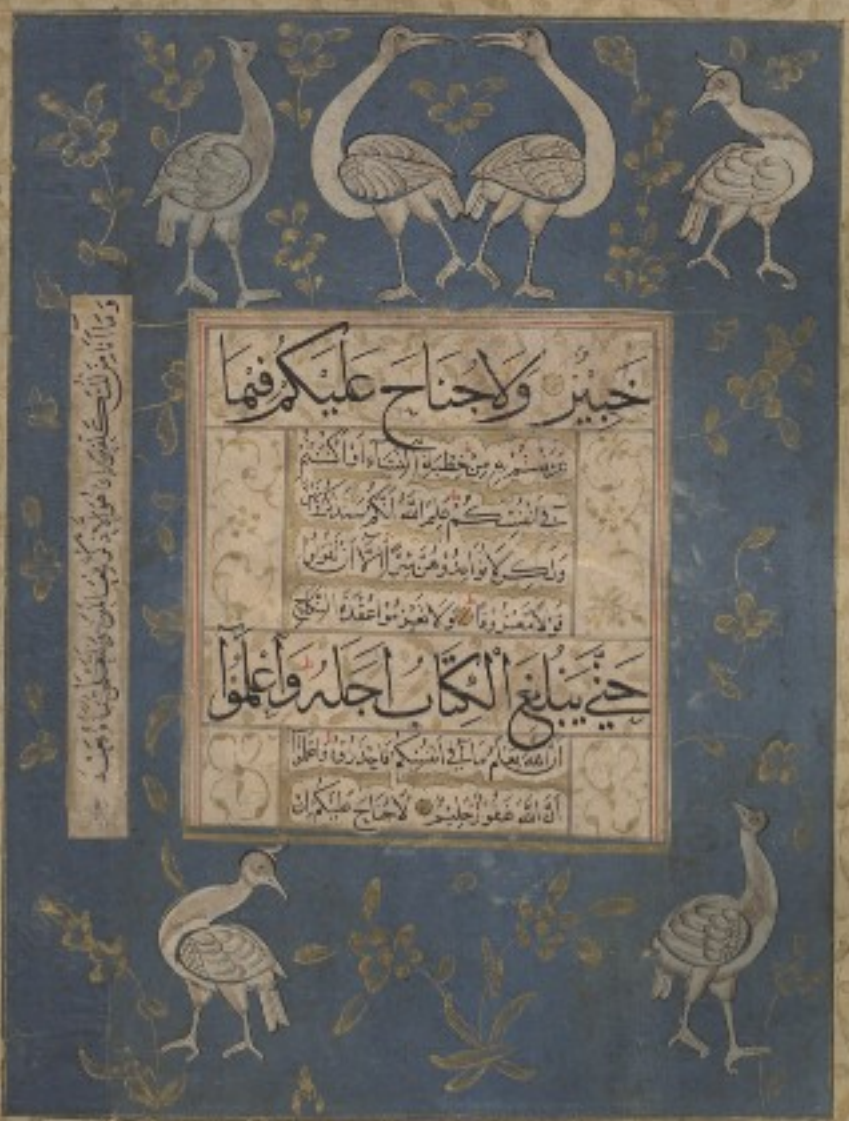 خَبِيْرٌ وَلَا جُنَاحَ عَلَيْكُمْ فِيْمَا
عَرَّضْتُمْ بِهِ مِنْ خِطْبَةِ النِّسَآءِ اَوْ اَكْنَنْتُمْ
فِىْ اَنْفُسِكُمْ عَلِمَ اللّٰهُ اَنَّكُمْ سَتَذْكُرُوْنَهُنَّ
وَلٰكِنْ لَا تُوَاعِدُوْهُنَّ سِرًّا اِلَّآ اَنْ تَقُوْلُوْا
قَوْلًا مَعْرُوْفًا وَلَا تَعْزِمُوْا عُقْدَةَ النِّكَاحِ
حَتّٰى يَبْلُغَ الْكِتَابُ اَجَلَهُ وَاعْلَمُوْا
اَنَّ اللّٰهَ يَعْلَمُ مَا فِىْ اَنْفُسِكُمْ فَاحْذَرُوْهُ وَاعْلَمُوْا
اَنَّ اللّٰهَ غَفُوْرٌ حَلِيْمٌ لَا جُنَاحَ عَلَيْكُمْ اِنْ